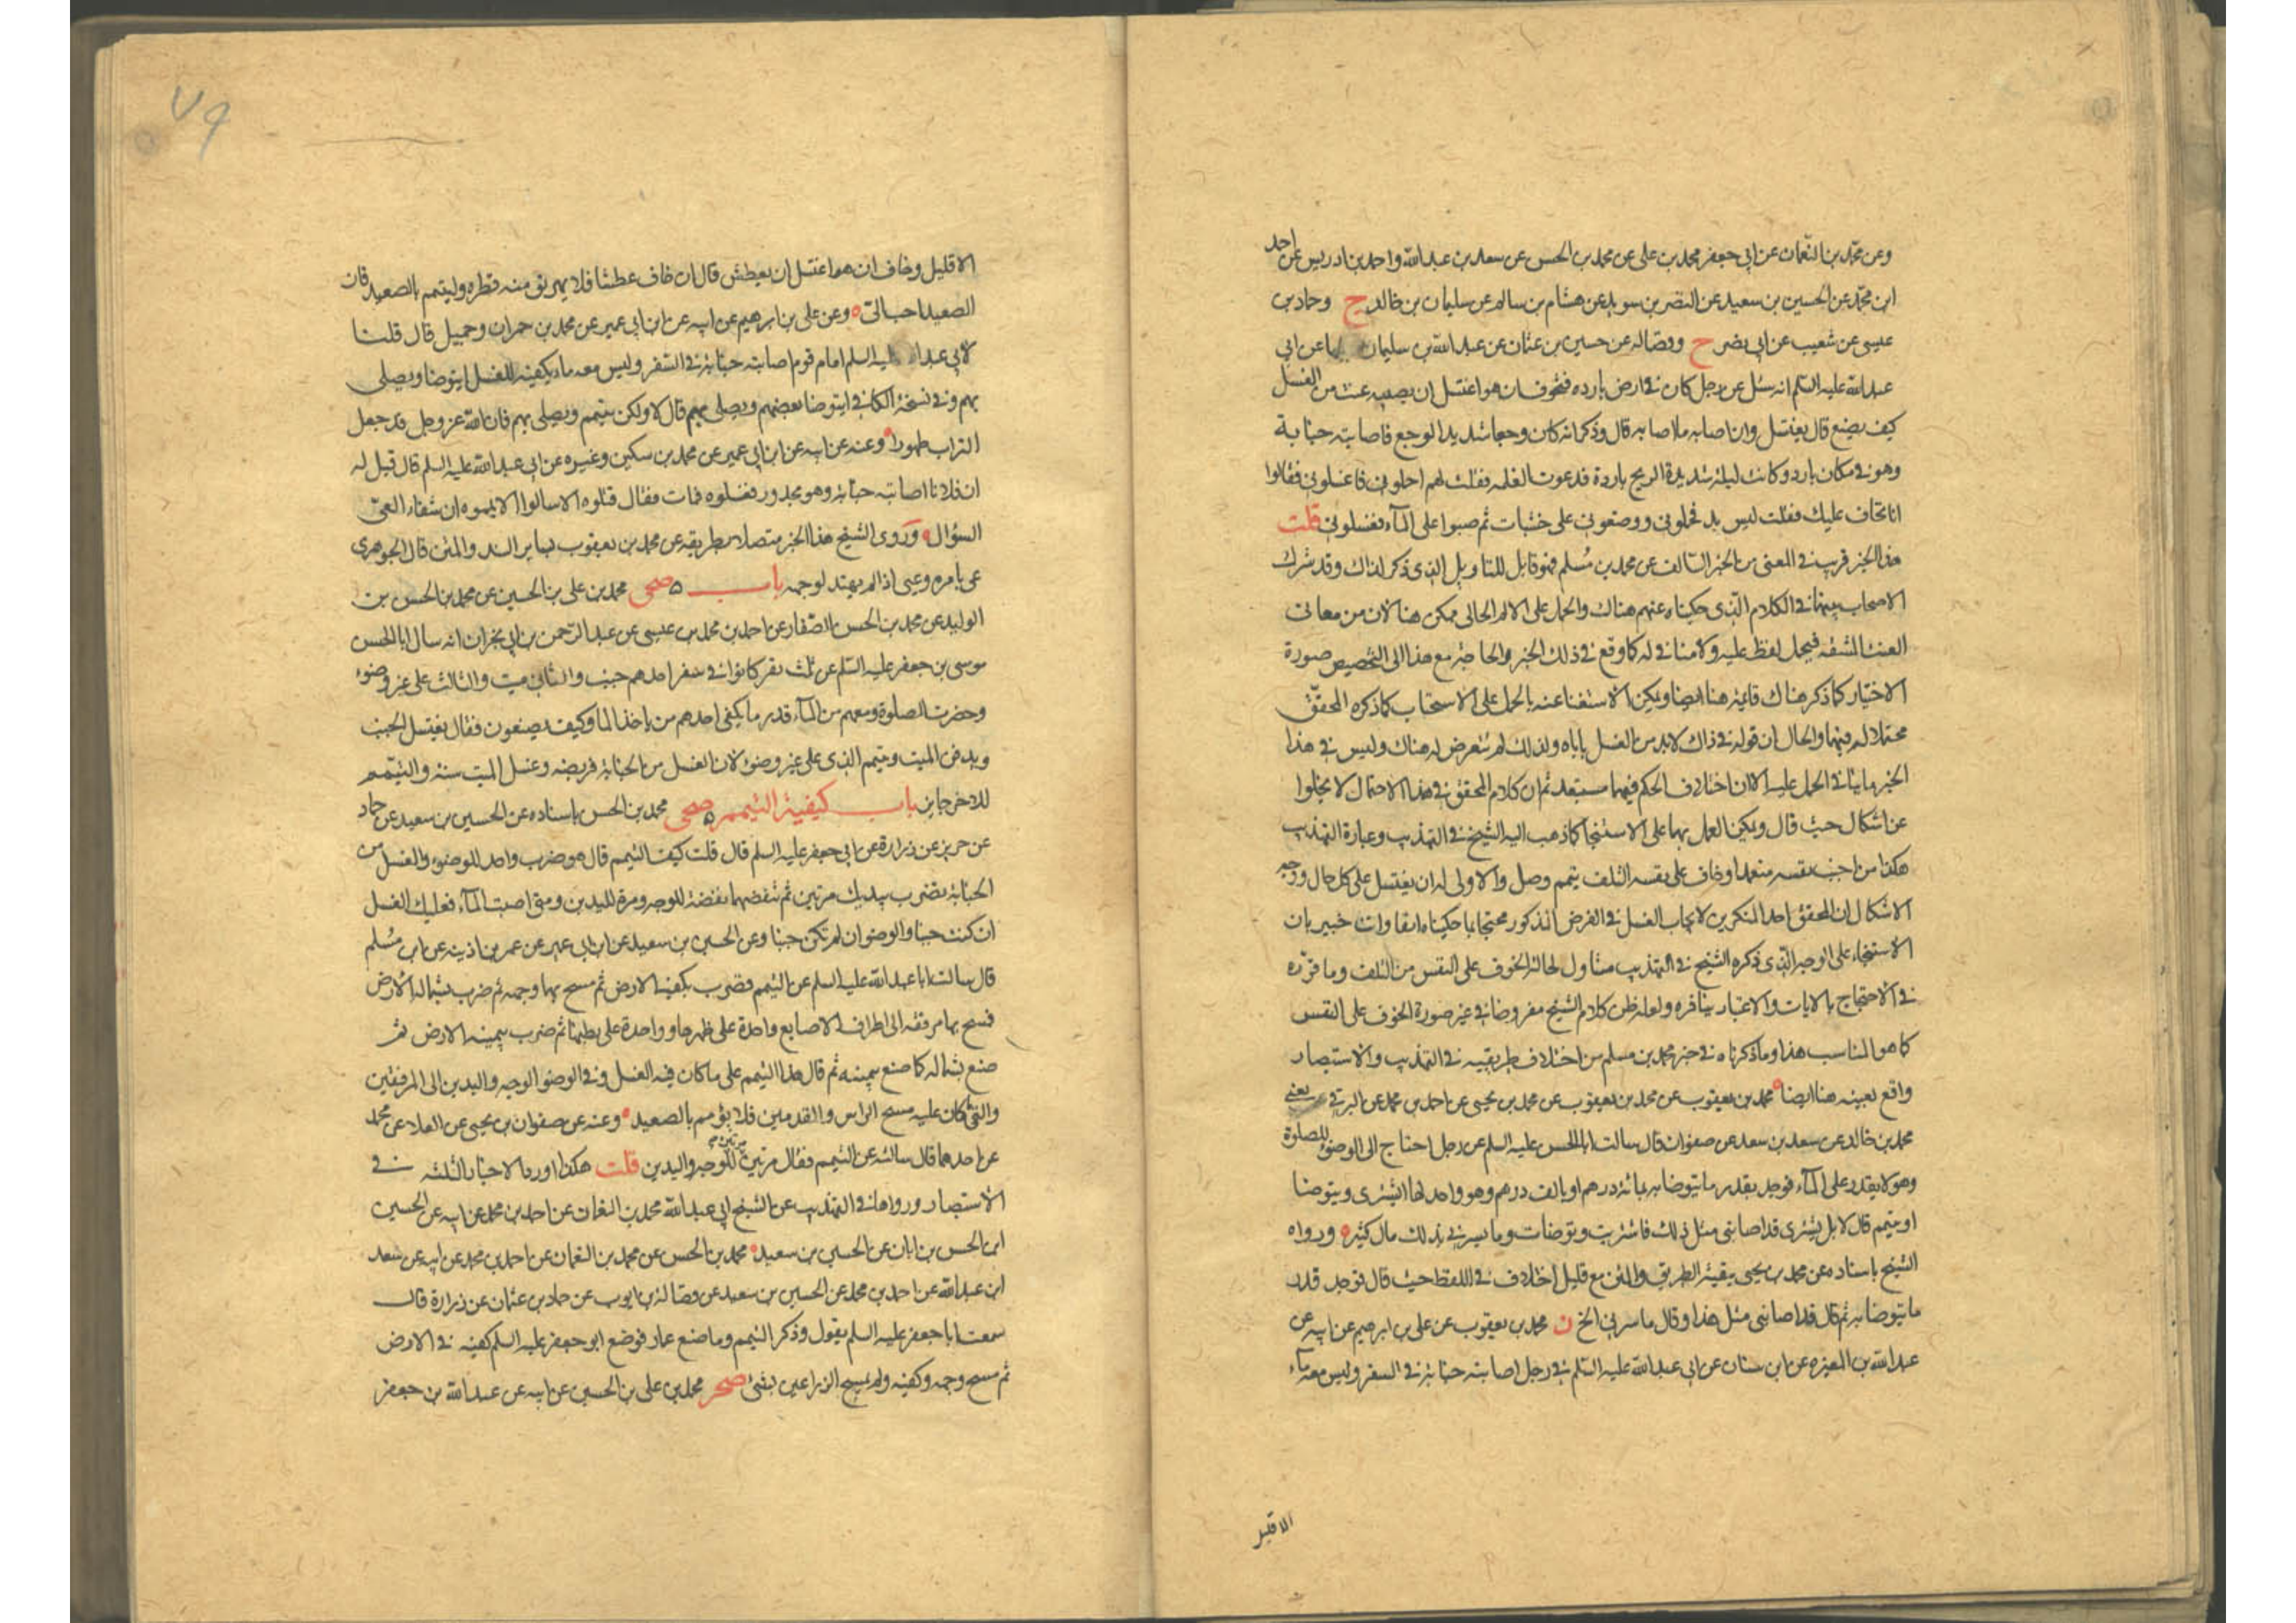 وعن محمد بن النعمان عن ابي جعفر محمد بن علي عن محمد بن الحسن عن سعد بن عبد الله واحمد بن ادريس عن احمد
ابن محمد عن الحسين بن سعيد عن النضر بن سويد عن هشام بن سالم عن سليمان بن خالد ح وحماد بن
عيسى عن شعيب عن ابي بصير ح وفضاله عن حسين بن عثمان عن عبد الله بن سليمان جميعا عن ابي
عبد الله عليه السلم انه سئل عن رجل كان في ارض بارده فتخوف ان هو اغتسل ان يصيبه عنت من الغسل
كيف يصنع قال يغتسل وان اصابه ما اصابه قال وذكر انه كان وجعا شديد الوجع فاصابته جنابة
وهو في مكان بارد وكانت ليلة شديدة الريح باردة فدعوت الغلمة فقلت لهم احملوني فاغسلوني فقالوا
انا نخاف عليك فقلت ليس بد فحملوني ووضعوني على خشبات ثم صبوا على الماء فغسلوني قلت
هذا الخبر قريب في المعنى من الخبر السالف عن محمد بن مسلم فهو قابل للتاويل الذي ذكر لذاك وقد شرك
الاصحاب بينهما في الكلام الذي حكيناه عنهم هناك والحمل على الالم الحالي ممكن هنا لان من معاني
العنت المشقه فيحمل لفظه عليه ولا منافي له كما وقع في ذلك الخبر والحاجة مع هذا الى التخصيص صورة
الاختيار كما ذكر هناك قايمة هنا ايضا ويمكن الاستغنا عنه بالحمل على الاستحباب كما ذكره المحقق
محتملا له فيهما والحال ان قوله في ذاك لا بد من الغسل ياباه ولذلك لم نتعرض له هناك وليس في هذا
الخبر ما ينافي الحمل عليه الا ان اختلاف الحكم فيهما مستبعد ثم ان كلام المحقق في هذا الاحتمال لا يخلوا
عن اشكال حيث قال ويمكن العمل بهما على الاستحبا كما ذهب اليه الشيخ في التهذيب وعبارة التهذيب
هكذا من اجنب نفسه متعمدا وخاف على نفسه التلف يتيمم وصلى والاولى له ان يغتسل على كل حال ووجه
الاشكال ان المحقق احد المنكرين لايجاب الغسل في الفرض المذكور محتجا بما حكيناه انفا وانت خبير بان
الاستحباب على الوجه الذي ذكره الشيخ في التهذيب متناول لحالة الخوف على النفس من التلف وما قرره
في الاحتجاج بالايات والاعتبار ينافره ولعله ظن كلام الشيخ مفروضا في غير صورة الخوف على النفس
كما هو المناسب هذا وما ذكرناه في خبر محمد بن مسلم من اختلاف طريقيه في التهذيب والاستبصار
واقع بعينه هنا ايضا محمد بن يعقوب عن محمد بن يحيى عن احمد بن محمد عن البرقي يعني
محمد بن خالد عن سعد بن سعد عن صفوان قال سالت ابا الحسن عليه السلم عن رجل احتاج الى الوضوء للصلوة
وهو لا يقدر على الماء فوجد بقدر ما يتوضا به بمائة درهم او بالف درهم وهو واجد لها ايشترى ويتوضا
او يتيمم قال لا بل يشترى قد اصابني مثل ذلك فاشتريت وتوضات وما يسرني بذلك مال كثير ورواه
الشيخ باسناده عن محمد بن يحيى ببقية الطريق والمتن مع قليل اختلاف في اللفظ حيث قال فوجد قدر
ما يتوضا به ثم قال قد اصابني مثل هذا وقال ما سرني الخ ن محمد بن يعقوب عن علي بن ابرهيم عن ابيه عن
عبد الله بن المغيره عن ابن سنان عن ابي عبد الله عليه السلم في رجل اصابته جنابة في السفر وليس معه ماء
الا قليل
٧٩
الا قليل وخاف ان هو اغتسل ان يعطش قال ان خاف عطشا فلا يهريق منه قطره وليتيمم بالصعيد فان
الصعيد احب الي وعن علي بن ابرهيم عن ابيه عن ابن ابي عمير عن محمد بن حمران وجميل قال قلنا
لابي عبد الله عليه السلم امام قوم اصابته جنابة في السفر وليس معه ماء يكفيه للغسل ايتوضا ويصلي
بهم وفي نسخة الكافي ايتوضا بعضهم ويصلي بهم قال لا ولكن يتيمم ويصلي بهم فان الله عز وجل قد جعل
التراب طهورا وعنه عن ابيه عن ابن ابي عمير عن محمد بن سكين وغيره عن ابي عبد الله عليه السلم قال قيل له
ان فلانا اصابته جنابة وهو مجدور فغسلوه فمات فقال قتلوه الا سالوا الا يمموه ان شفاء العي
السؤال وروى الشيخ هذا الخبر متصلا بطريقه عن محمد بن يعقوب بساير السند والمتن قال الجوهرى
عي بامره وعيي اذا لم يهتد لوجهه باب صحى محمد بن علي بن الحسين عن محمد بن الحسن بن
الوليد عن محمد بن الحسن الصفار عن احمد بن محمد بن عيسى عن عبد الرحمن بن ابي نجران انه سال ابا الحسن
موسى بن جعفر عليه السلم عن ثلث نفر كانوا في سفر احدهم جنب والثاني ميت والثالث على غير وضوء
وحضرت الصلوة ومعهم من الماء قدر ما يكفي احدهم من ياخذ الما وكيف يصنعون فقال يغتسل الجنب
ويدفن الميت ويتيمم الذي على غير وضوء لان الغسل من الجنابة فريضه وغسل الميت سنة والتيمم
للاخر جايز باب كيفية التيمم صحى محمد بن الحسن باسناده عن الحسين بن سعيد عن حماد
عن حريز عن زرارة عن ابي جعفر عليه السلم قال قلت كيف التيمم قال هو ضرب واحد للوضوء والغسل من
الجنابة تضرب بيديك مرتين ثم تنفضهما نفضة للوجه ومرة لليدين ومتى اصبت الماء فعليك الغسل
ان كنت جنبا والوضوء ان لم تكن جنبا وعن الحسين بن سعيد عن ابن ابي عمير عن عمر بن اذينه عن ابن مسلم
قال سالت ابا عبد الله عليه السلم عن التيمم فضرب بكفيه الارض ثم مسح بهما وجهه ثم ضرب بشماله الارض
فمسح بها مرفقه الى اطراف الاصابع واحدة على ظهرها وواحدة على بطنها ثم ضرب بيمينه الارض ثم
صنع بشماله كما صنع بيمينه ثم قال هذا التيمم على ما كان فيه الغسل وفي الوضوء الوجه واليدين الى المرفقين
والقى ما كان عليه مسح الراس والقدمين فلا يؤمم بالصعيد وعنه عن صفوان بن يحيى عن العلاء عن محمد
عن احدهما قال سالته عن التيمم فقال مرتين مرتين للوجه واليدين قلت هكذا اورد الاخبار الثلثه في
الاستبصار ورواها في التهذيب عن الشيخ ابي عبد الله محمد بن النعمان عن احمد بن محمد عن ابيه عن الحسين
ابن الحسن بن ابان عن الحسين بن سعيد محمد بن الحسن عن محمد بن النعمان عن احمد بن محمد عن ابيه عن سعد
ابن عبد الله عن احمد بن محمد عن الحسين بن سعيد عن فضالة بن ايوب عن حماد بن عثمان عن زرارة قال
سمعت ابا جعفر عليه السلم يقول وذكر التيمم وما صنع عمار فوضع ابو جعفر عليه السلم كفيه في الارض
ثم مسح وجهه وكفيه ولم يمسح الذراعين بشئ صحر محمد بن علي بن الحسين عن ابيه عن عبد الله بن جعفر